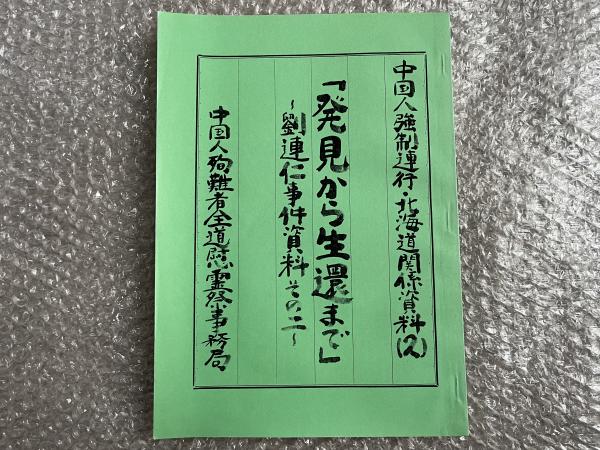 中国人強制連行・北海道関係資料(2)
「発見から生還まで」
~劉連仁事件資料その二~
中国人殉難者全道慰霊祭事務局